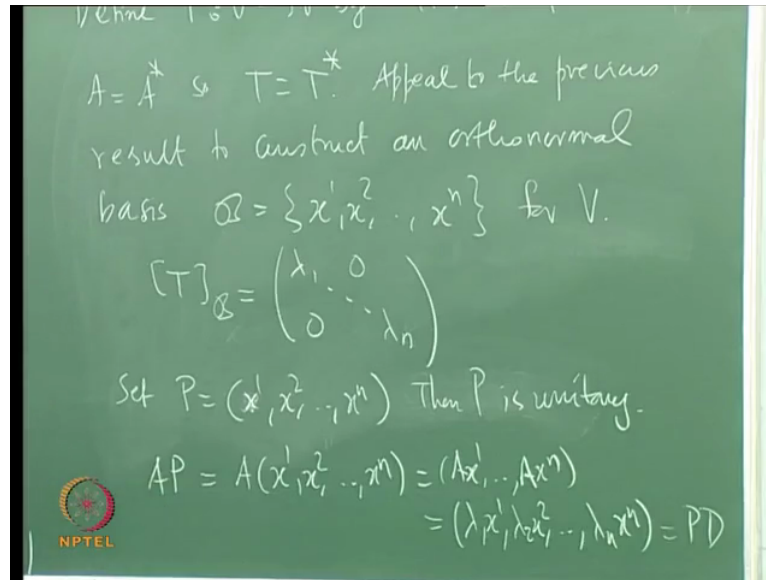 Define
A = A* so T = T*. Appeal to the previous
result to construct an orthonormal
basis ℬ = {x¹, x², .., xⁿ} for V.
[T]_ℬ = (λ₁ 0 ⋱ 0 λₙ)
Set P = (x¹, x², .., xⁿ) Then P is unitary.
AP = A(x¹, x², .., xⁿ) = (Ax¹, .., Axⁿ)
= (λ₁x¹, λ₂x², .., λₙxⁿ) = PD
NPTEL